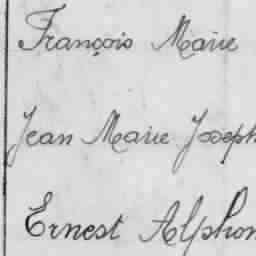 François Marie
Jean Marie Joseph
Ernest Alphon